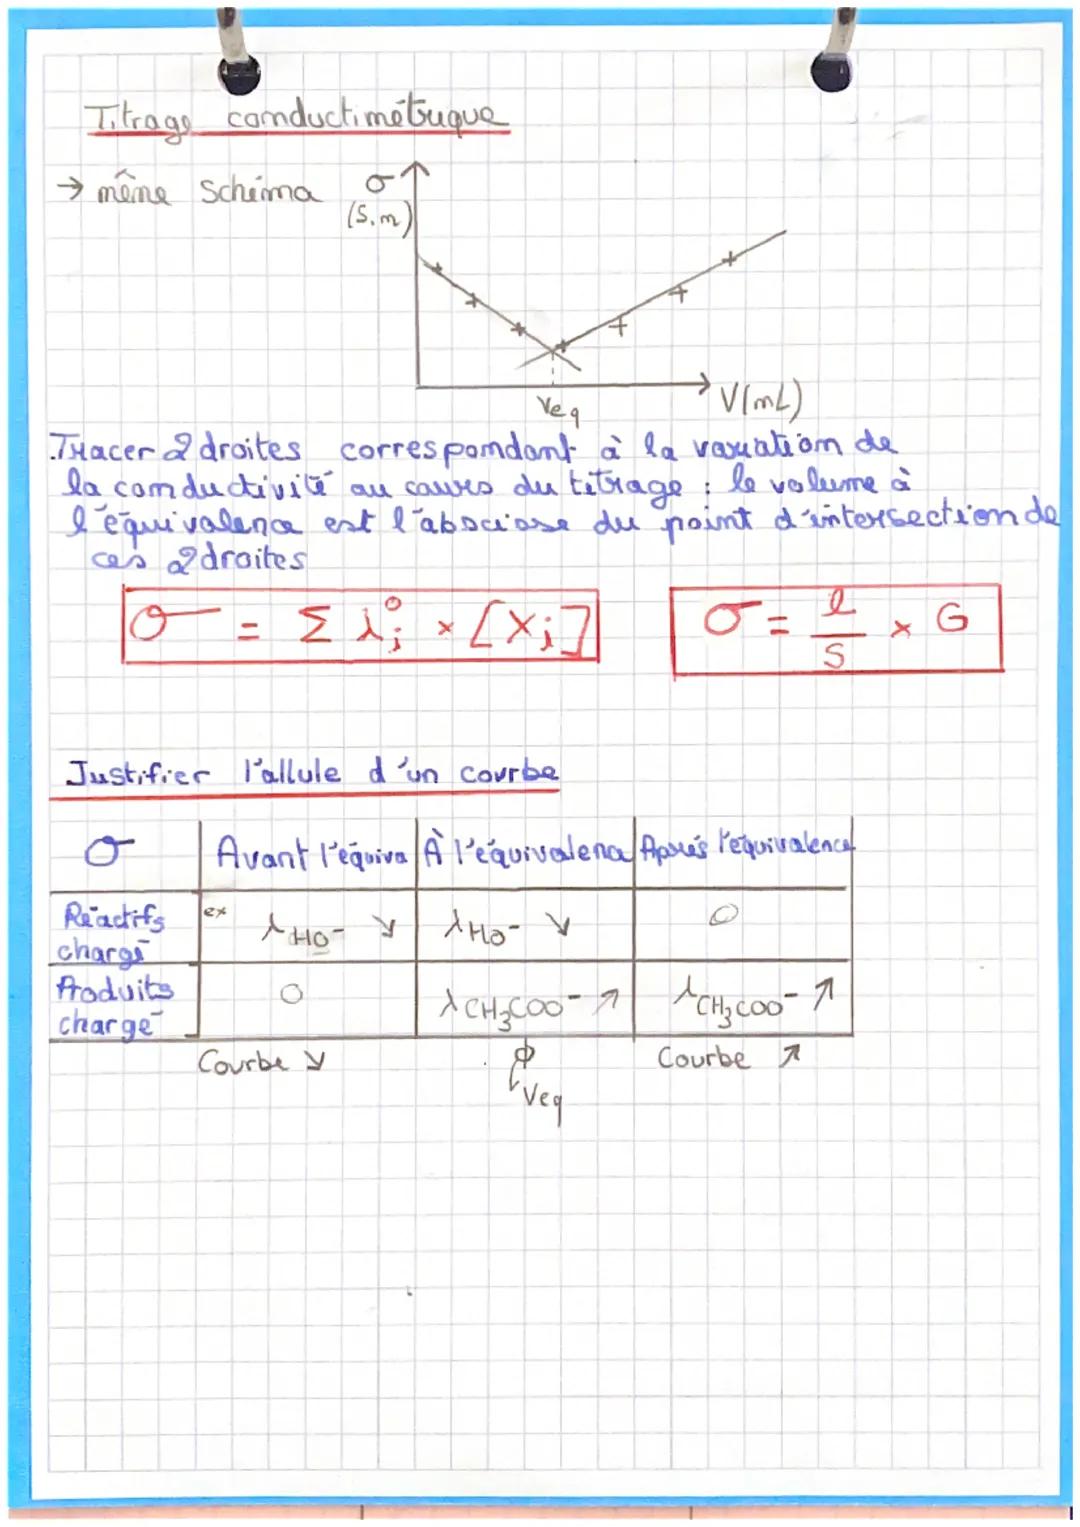 Titrage conductimétrique
→ même Schéma
σ
(S.m)
V(mL)
Veq
Tracer 2 droites correspondant à la variation de
la conductivité au cours du titrage : le volume à
l'équivalence est l'abscisse du point d'intersection de
ces 2 droites
σ = Σ λ°i × [Xi]
σ = l/S × G
Justifier l'allule d'un courbe
σ | Avant l'équiva | À l'équivalence | Après l'équivalence
Réactifs chargé | ex λHO- ↘ | λHO- ↘ | 0
Produits chargé | 0 | λCH3COO- ↗ | λCH3COO- ↗
Courbe ↘
Veq
Courbe ↗